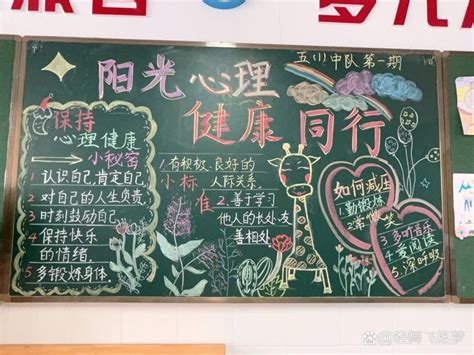 五(1)中队第一期
阳光心理
健康同行
保持
心理健康
小秘密
1 认识自己,肯定自己
2 对自己的人生负责
3 时刻鼓励自己
4 保持快乐
的情绪
5 多锻炼身体
小标准
1.有积极、良好的
人际关系。
2.善于学习
他人的长处友
善相处
如何减压
1.勤锻炼
2.常微笑
3.多听音乐
4.爱阅读
5.深呼吸
@轻舞飞扬梦